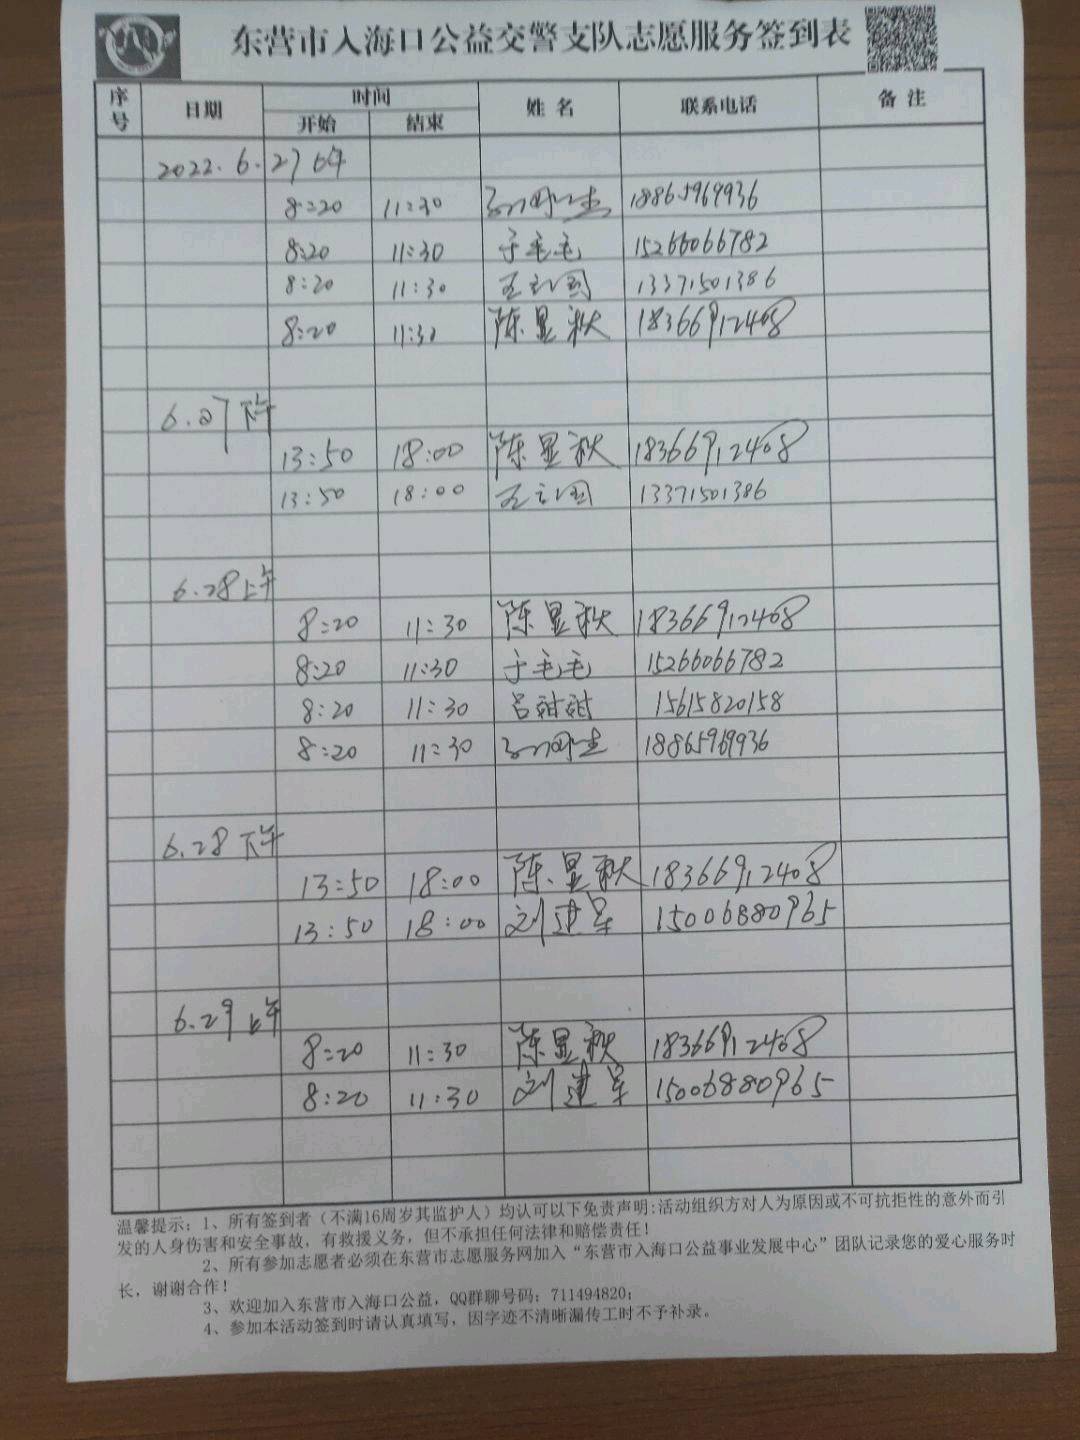 东营市入海口公益交警支队志愿服务签到表
序号 日期 时间 姓名 联系电话 备注
开始 结束
2022.6.27上午
8:20 11:30 18865969936
8:20 11:30 于毛毛 15266066782
8:20 11:30 王立国 13371501386
8:20 11:30 陈显秋 18366912408
6.27下午
13:50 18:00 陈显秋 18366912408
13:50 18:00 王立国 13371501386
6.28上午
8:20 11:30 陈显秋 18366912408
8:20 11:30 于毛毛 15266066782
8:20 11:30 吕甜甜 15615820158
8:20 11:30 18865969936
6.28下午
13:50 18:00 陈显秋 18366912408
13:50 18:00 刘建军 15006880965
6.29上午
8:20 11:30 陈显秋 18366912408
8:20 11:30 刘建军 15006880965
温馨提示：1、所有签到者（不满16周岁其监护人）均认可以下免责声明:活动组织方对人为原因或不可抗拒性的意外而引
发的人身伤害和安全事故，有救援义务，但不承担任何法律和赔偿责任！
2、所有参加志愿者必须在东营市志愿服务网加入“东营市入海口公益事业发展中心”团队记录您的爱心服务时
长，谢谢合作！
3、欢迎加入东营市入海口公益，QQ群聊号码：711494820；
4、参加本活动签到时请认真填写，因字迹不清晰漏传工时不予补录。